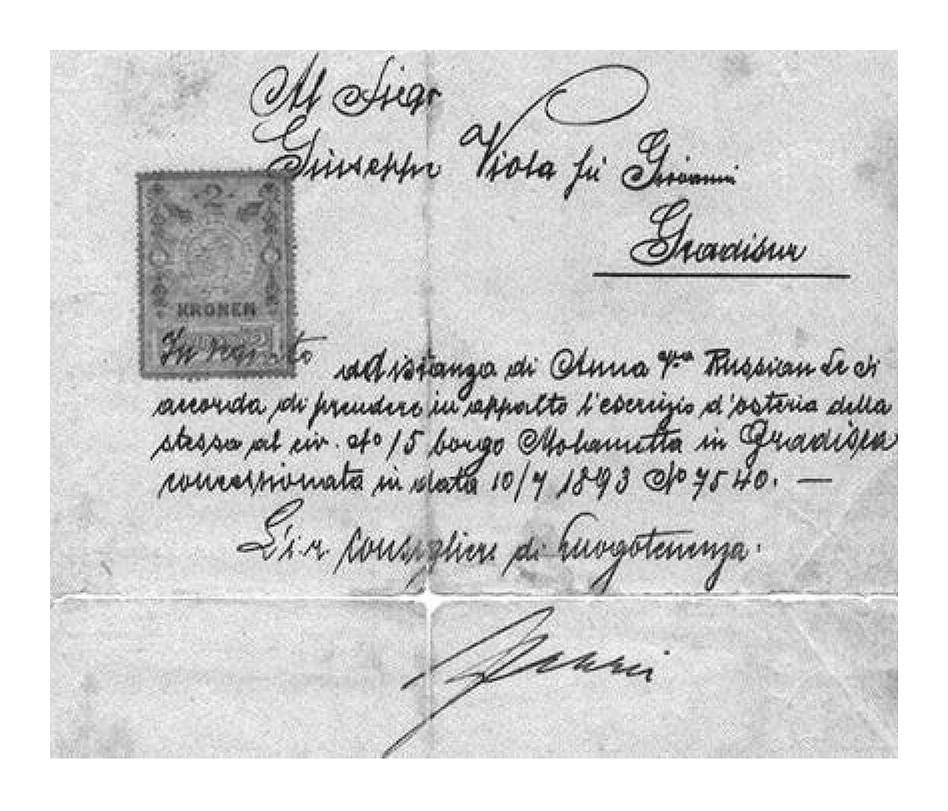 Al Sigr
Giuseppe Viola fu Giovanni
Gradisca
2
KRONEN
In seguito ad istanza di Anna qm Russian Le si
accorda di prendere in appalto l'esercizio d'osteria della
stessa al civ. No 15 borgo Molamatta in Gradisca
concessionata in data 10/7 1893 No 7540. —
L'i. r. Consigliere di Luogotenenza.